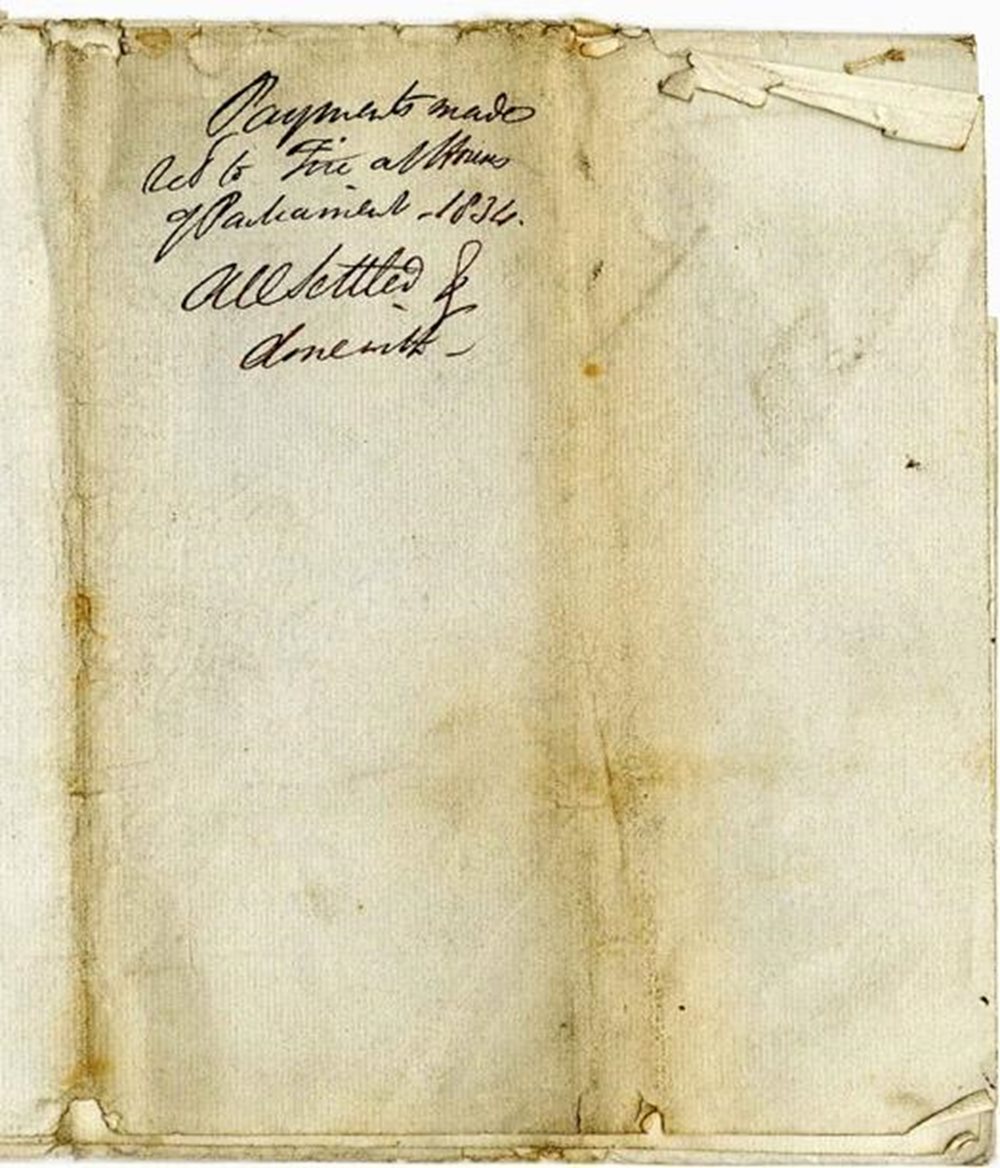 Payments made
Red to Fire at Houses
of Parliament - 1834.
All Settled &
done with -